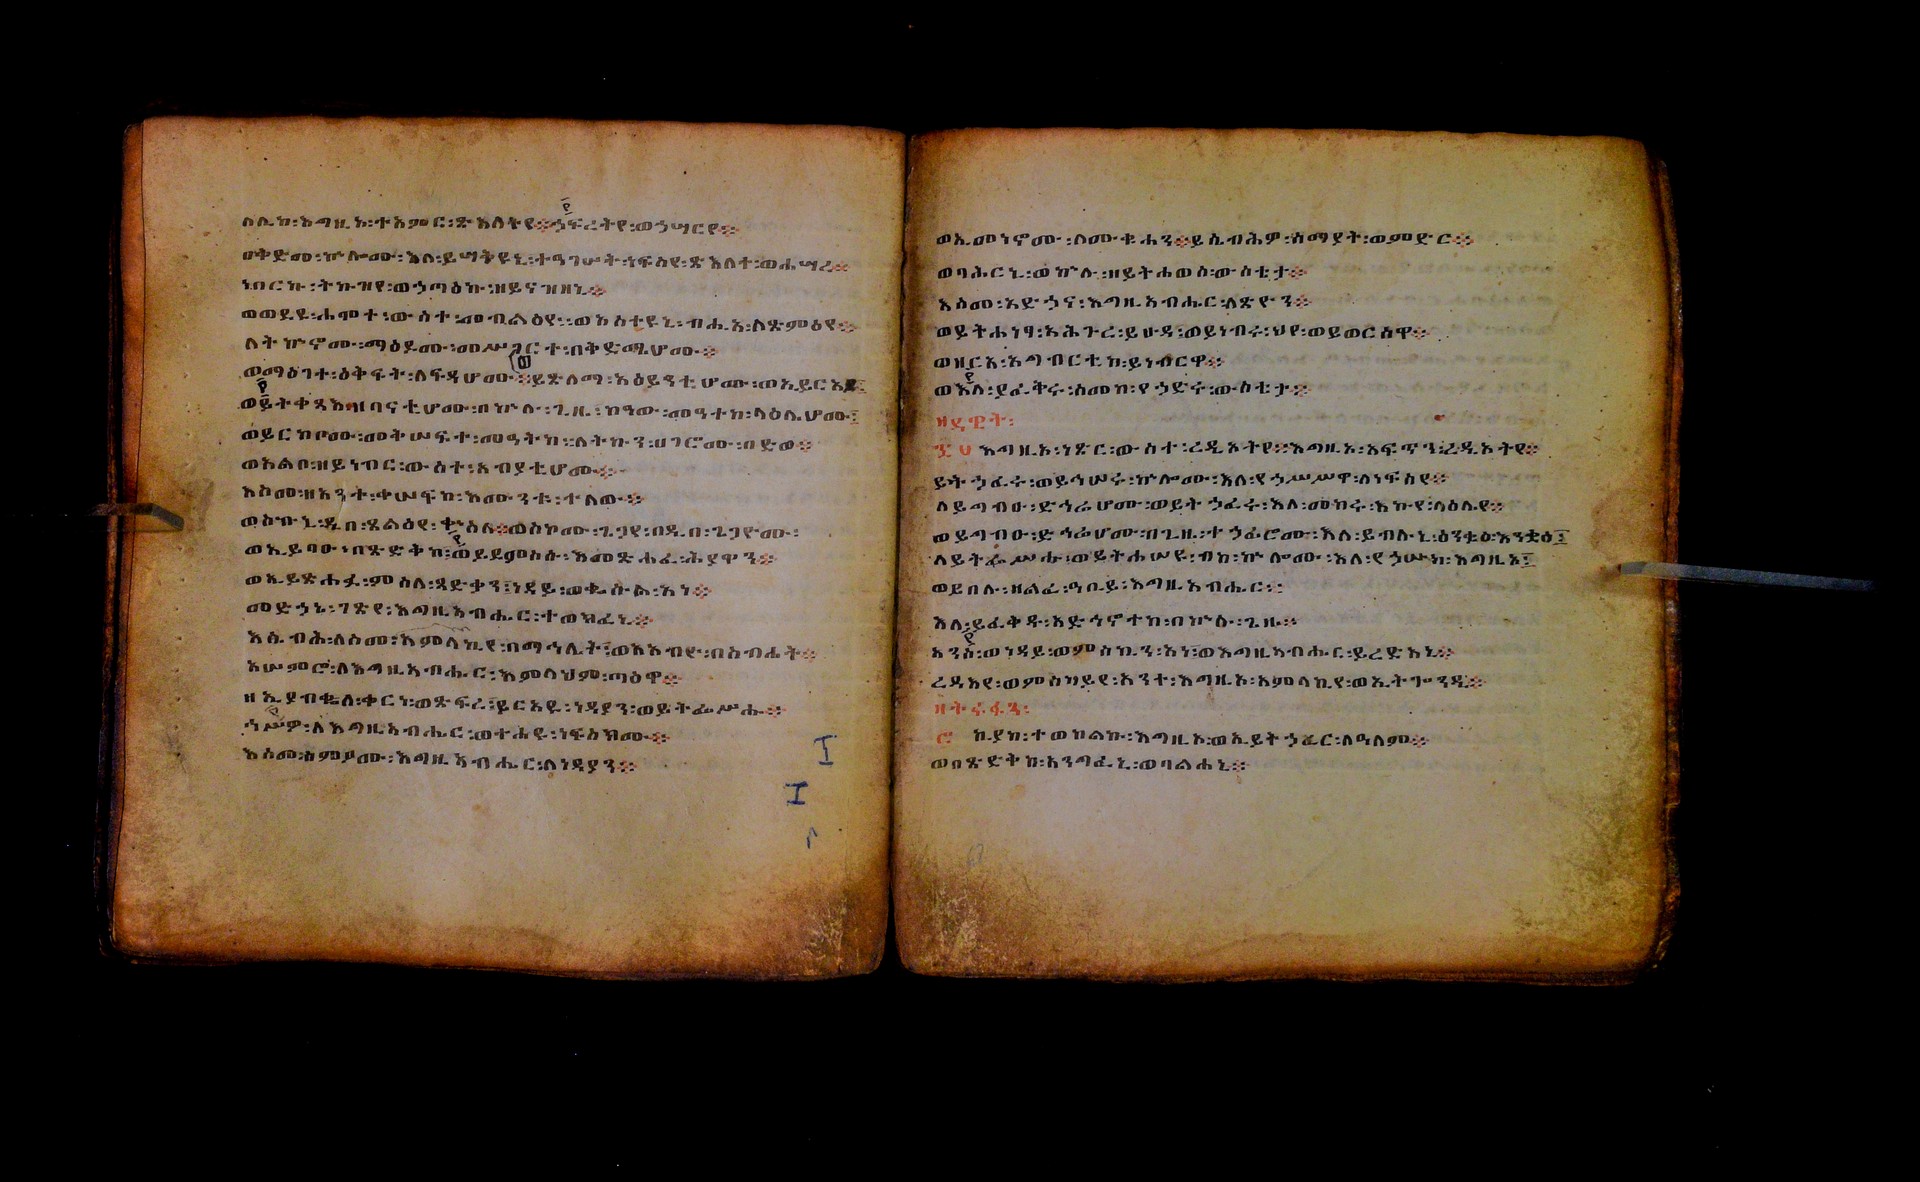 ለሊከ፡እግዚኦ፡ተአምር፡ጽእለትየ፨ኀፍረትየ፡ወኃሣርየ፨
ቅድመ፡ኵሎሙ፡እለ፡ይሣቅዩኒ፡ተዓገሠት፡ነፍስየ፡ጽእለተ፡ወሐሣረ፨
ነበርኩ፡ትኩዝየ፡ወኃጣዕኩ፡ዘይናዝዘኒ፨
ወወደዩ፡ሐሞተ፡ውስተ፡መብልዕየ፡ወአስተዩኒ፡ብሒአ፡ለጽምዕየ፨
ለትኵኖሙ፡ማዕዶሙ፡መሥገርተ፡በቅድሜሆሙ፨
ወማዕገተ፡ዕቅፍት፡ለፍዳሆሙ፨ይጽለማ፡አዕይንቲሆሙ፡ወኢይርአያ
ወይትቀጻዕ፡ዘባናቲሆሙ፡በኵሉ፡ጊዜ፡ከዓው፡መዓተከ፡ላዕሌሆሙ
ወይርከቦሙ፡መቅሠፍተ፡መዓትከ፡ለትኩን፡ሀገሮሙ፡በድወ፨
ወአልቦ፡ዘይነብር፡ውስተ፡አብያቲሆሙ፨
እስመ፡ዘአንተ፡ቀሠፍከ፡እሙንቱ፡ተለው፨
ወስኩኒ፡ዲበ፡ጼልዕየ፡ቍስለ፨ወስኮሙ፡ጌጋየ፡በዲበ፡ጌጋዮሙ፡
ወኢይባኡ፡በጽድቅከ፡ወይደምሰሱ፡እመጽሐፈ፡ሕያዋን፨
ወኢይጽሐፉ፡ምስለ፡ጻድቃን፡ነዳይ፡ወቍሱል፡አነ፨
መድኀኔ፡ገጽየ፡እግዚአብሔር፡ተወክፈኒ፨
እሴብሕ፡ለስመ፡አምላኪየ፡በማኅሌት፡ወአአብዮ፡በስብሐት፨
አሠምሮ፡ለእግዚአብሔር፡እምላህም፡ጣዕዋ፨
ዘኢያብቈለ፡ቀርነ፡ወጽፍረ፡ይርአዩ፡ነዳያን፡ወይትፌሥሑ፨
ኅሥዎ፡ለእግዚአብሔር፡ወተሐዩ፡ነፍስክሙ፨
እስመ፡ሰምዖሙ፡እግዚአብሔር፡ለነዳያን፨
ወኢመነኖሙ፡ለሙቁሐን፨ይሴብሕዎ፡ሰማያት፡ወምድር፨
ወባሕርኒ፡ወኵሉ፡ዘይትሐወስ፡ውስቴታ፨
እስመ፡አድኀና፡እግዚአብሔር፡ለጽዮን፨
ወይትሐነፃ፡አሕጉረ፡ይሁዳ፡ወይነብሩ፡ህየ፡ወይወርስዋ፨
ወዘርአ፡አግብርቲከ፡ይነብርዋ፨
ወእለ፡ያፈቅሩ፡ስመከ፡የኃድሩ፡ውስቴታ፨
ዘዳዊት፡
፷፱ እግዚኦ፡ነጽር፡ውስተ፡ረዲኦትየ፨እግዚኦ፡አፍጥን፡ረዲኦትየ፨
ይትኃፈሩ፡ወይኅሠሩ፡ኵሎሙ፡እለ፡የኃሥሥዋ፡ለነፍስየ፨
ለይግብኡ፡ድኅሬሆሙ፡ወይትኃፈሩ፡እለ፡መከሩ፡እኩየ፡ላዕሌየ፨
ወይግብኡ፡ድኅሬሆሙ፡በጊዜ፡ተኃፊሮሙ፡እለ፡ይብሉኒ፡ዕንቋዕ፡እንቋዕ
ለይትፌሥሑ፡ወይትሐሠዩ፡ብከ፡ኵሎሙ፡እለ፡የኃሡከ፡እግዚኦ
ወይበሉ፡ዘልፈ፡ዓቢይ፡እግዚአብሔር፡
እለ፡ይፈቅዱ፡አድኅኖተከ፡በኵሉ፡ጊዜ፡
አንሰ፡ወነዳይ፡ወምስኪን፡አነ፡ወእግዚአብሔር፡ይረድአኒ፨
ረዳእየ፡ወምስካይየ፡አንተ፡እግዚኦ፡አምላኪየ፡ወኢትጐንዲ፨
ዘትሩፋን፡
፸ ኪያከ፡ተወከልኩ፡እግዚኦ፡ወኢይትኃፈር፡ለዓለም፨
ወበጽድቅከ፡አንግፈኒ፡ወባልሐኒ፨